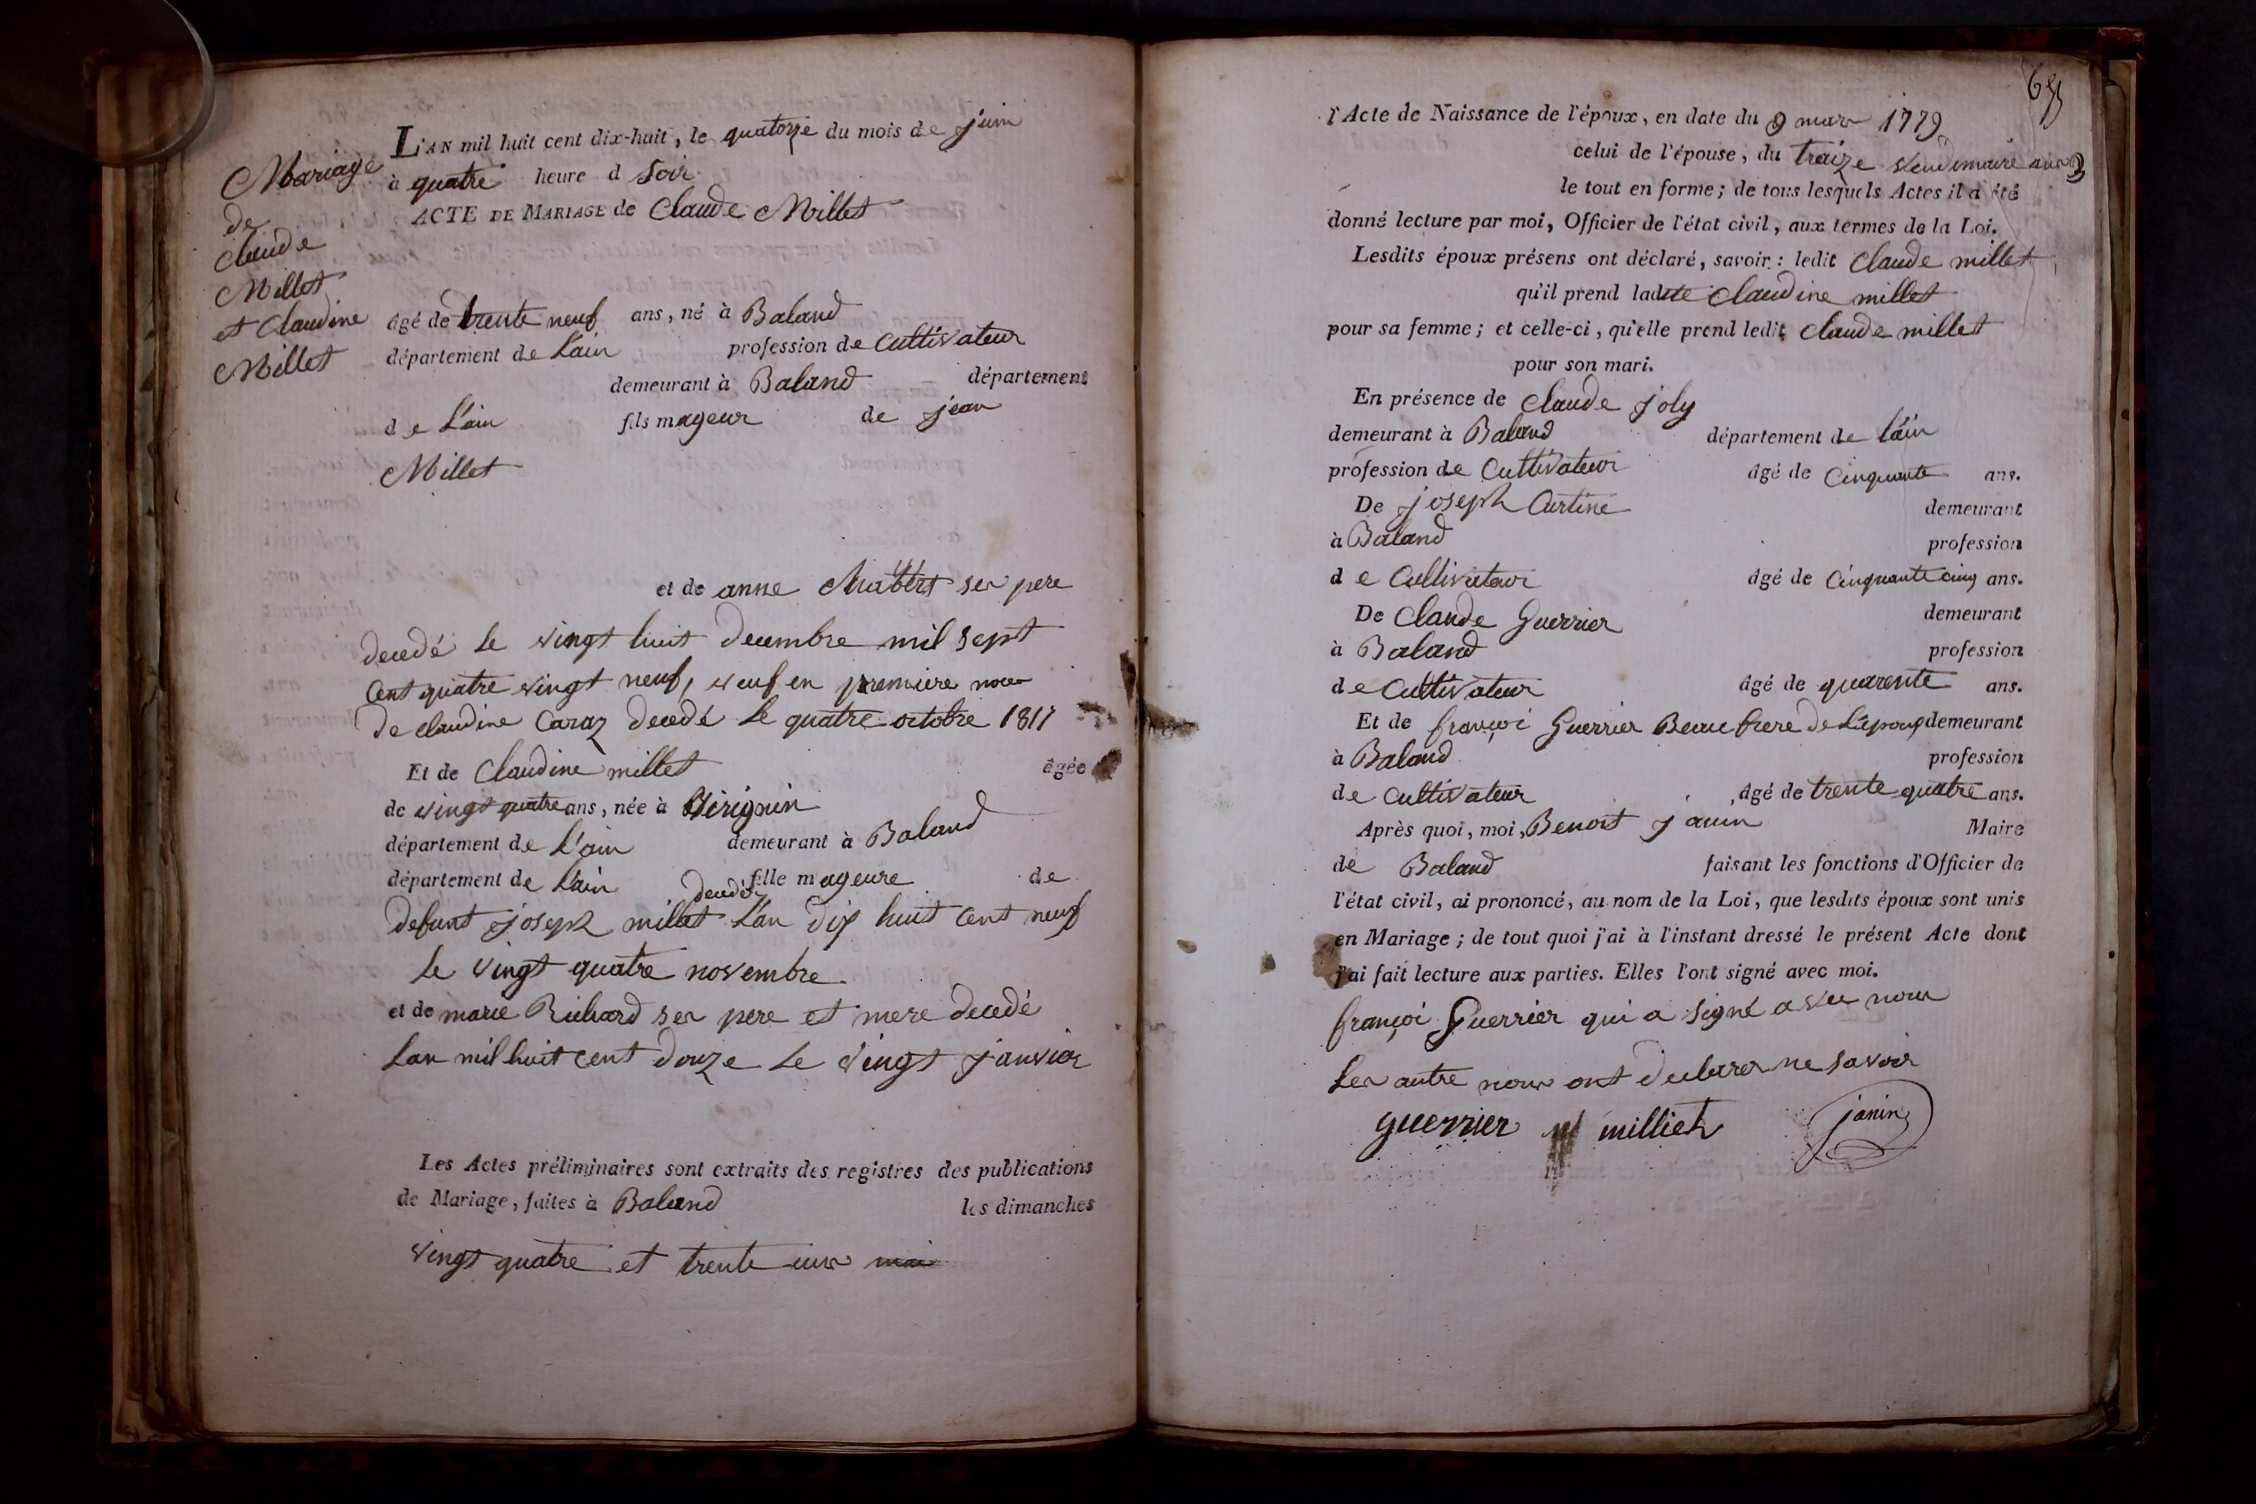 Mariage
de
Claude
Millet
et Claudine
Millet
L'AN mil huit cent dix-huit, le quatorze du mois de juin
à quatre heure d Soir
ACTE DE MARIAGE de Claude Millet
âgé de trente neuf ans, né à Baland
département de L'ain profession de Cultivateur
demeurant à Baland département
de L'ain fils mageur de jean
Millet
et de anne Chabert ses pere
decedé le vingt huit decembre mil sept
cent quatre vingt neuf, veuf en premiere noces
de claudine Caraz decedé le quatre octobre 1817
Et de Claudine millet âgée
de vingt quatre ans, née à
département de L'ain demeurant à Baland
département de L'ain fille mageure de
decedé
defunt joseph millet L'an dix huit cent neuf
le vingt quatre novembre
et de marie Richard ses pere et mere decedé
Lan mil huit cent douze le vingt janvier
Les Actes préliminaires sont extraits des registres des publications
de Mariage, faites à Baland les dimanches
vingt quatre et trente un mai
65
l'Acte de Naissance de l'époux, en date du 9 mars 1779
celui de l'épouse, du treize vendemaire an 3
le tout en forme; de tous lesquels Actes il a été
donné lecture par moi, Officier de l'état civil, aux termes de la Loi.
Lesdits époux présens ont déclaré, savoir: ledit Claude millet
qu'il prend ladite Claudine millet
pour sa femme; et celle-ci, qu'elle prend ledit Claude millet
pour son mari.
En présence de Claude joly
demeurant à Baland département de L'ain
profession de Cultivateur âgé de Cinquante ans.
De joseph Curtine demeurant
à Baland profession
de Cultivateur âgé de Cinquante cinq ans.
De Claude Guerrier demeurant
à Baland profession
de Cultivateur âgé de quarente ans.
Et de françoi Guerrier Beau frere de L'epoux demeurant
à Baland profession
de Cultivateur âgé de trente quatre ans.
Après quoi, moi, Benoit janin Maire
de Baland faisant les fonctions d'Officier de
l'état civil, ai prononcé, au nom de la Loi, que lesdits époux sont unis
en Mariage; de tout quoi j'ai à l'instant dressé le présent Acte dont
j'ai fait lecture aux parties. Elles l'ont signé avec moi.
françoi Guerrier qui a signé avec nous
Les autre nous ont declarer ne savoir
guerrier milliet janin